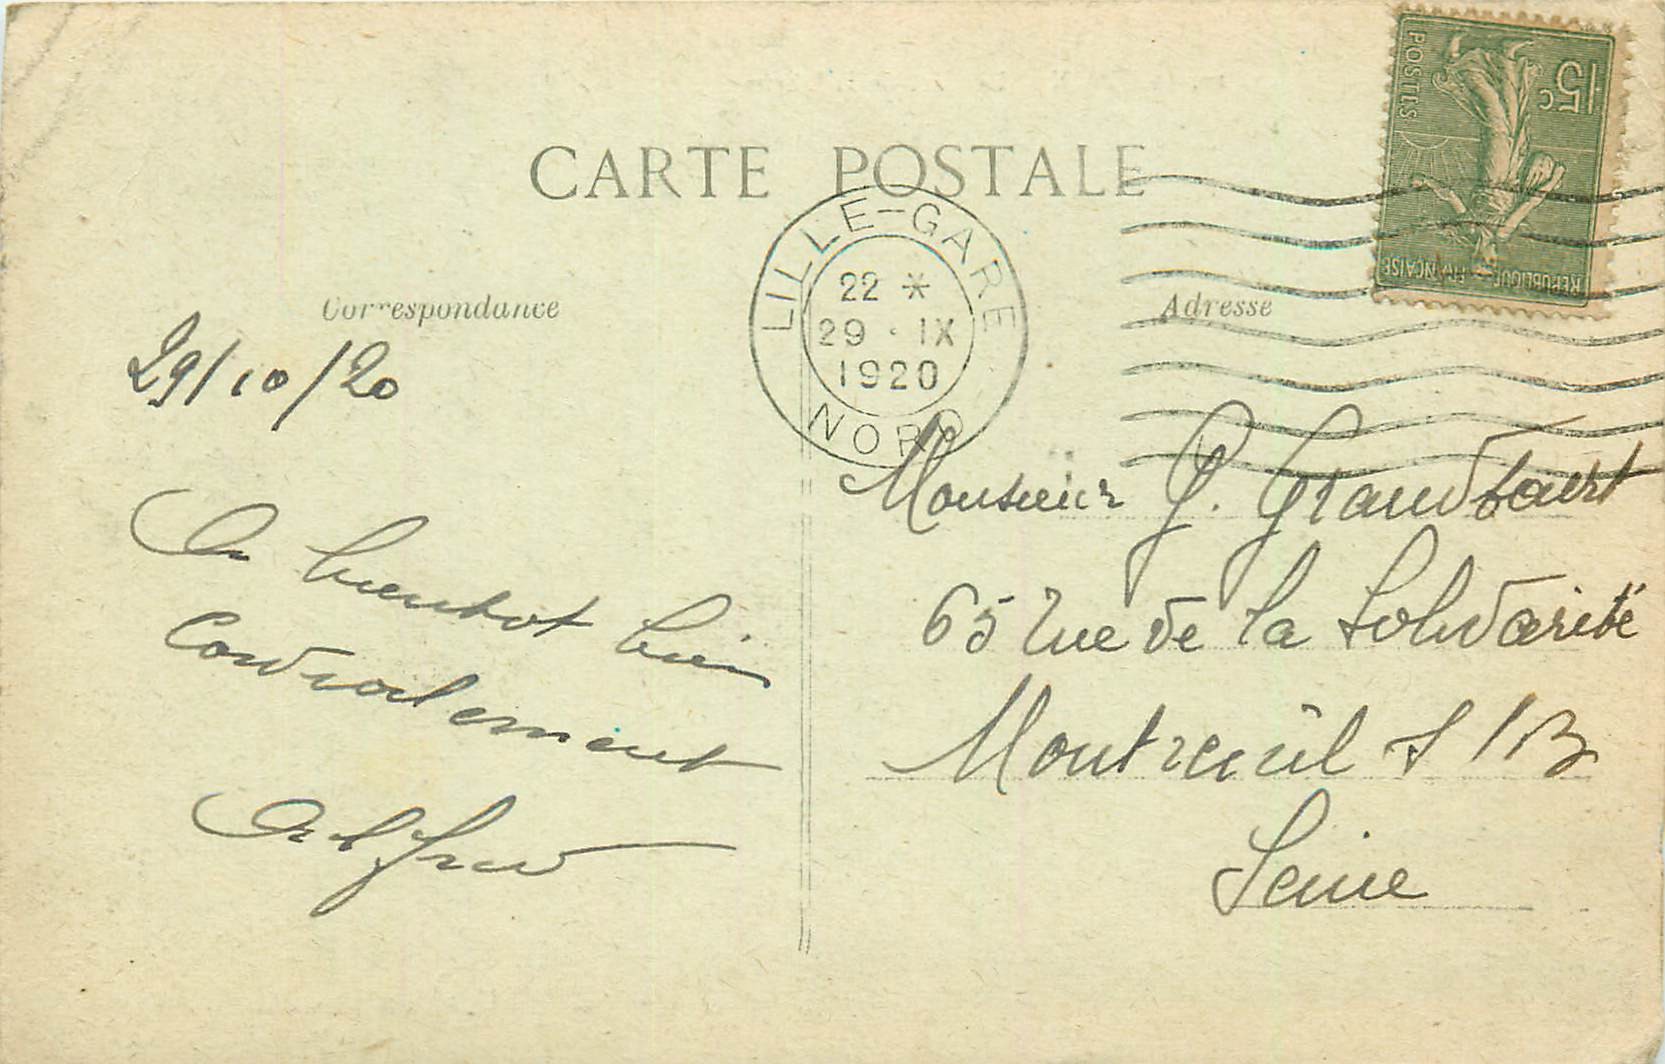 CARTE POSTALE
POSTES
15c
REPUBLIQUE FRANÇAISE
LILLE-GARE
22 *
29 · IX
1920
NORD
Correspondance
Adresse
29/10/20
A bientot bien
Cordialement
Alfred
Monsieur G. Grandbaert
65 rue de la Solidarité
Montreuil s/B
Seine